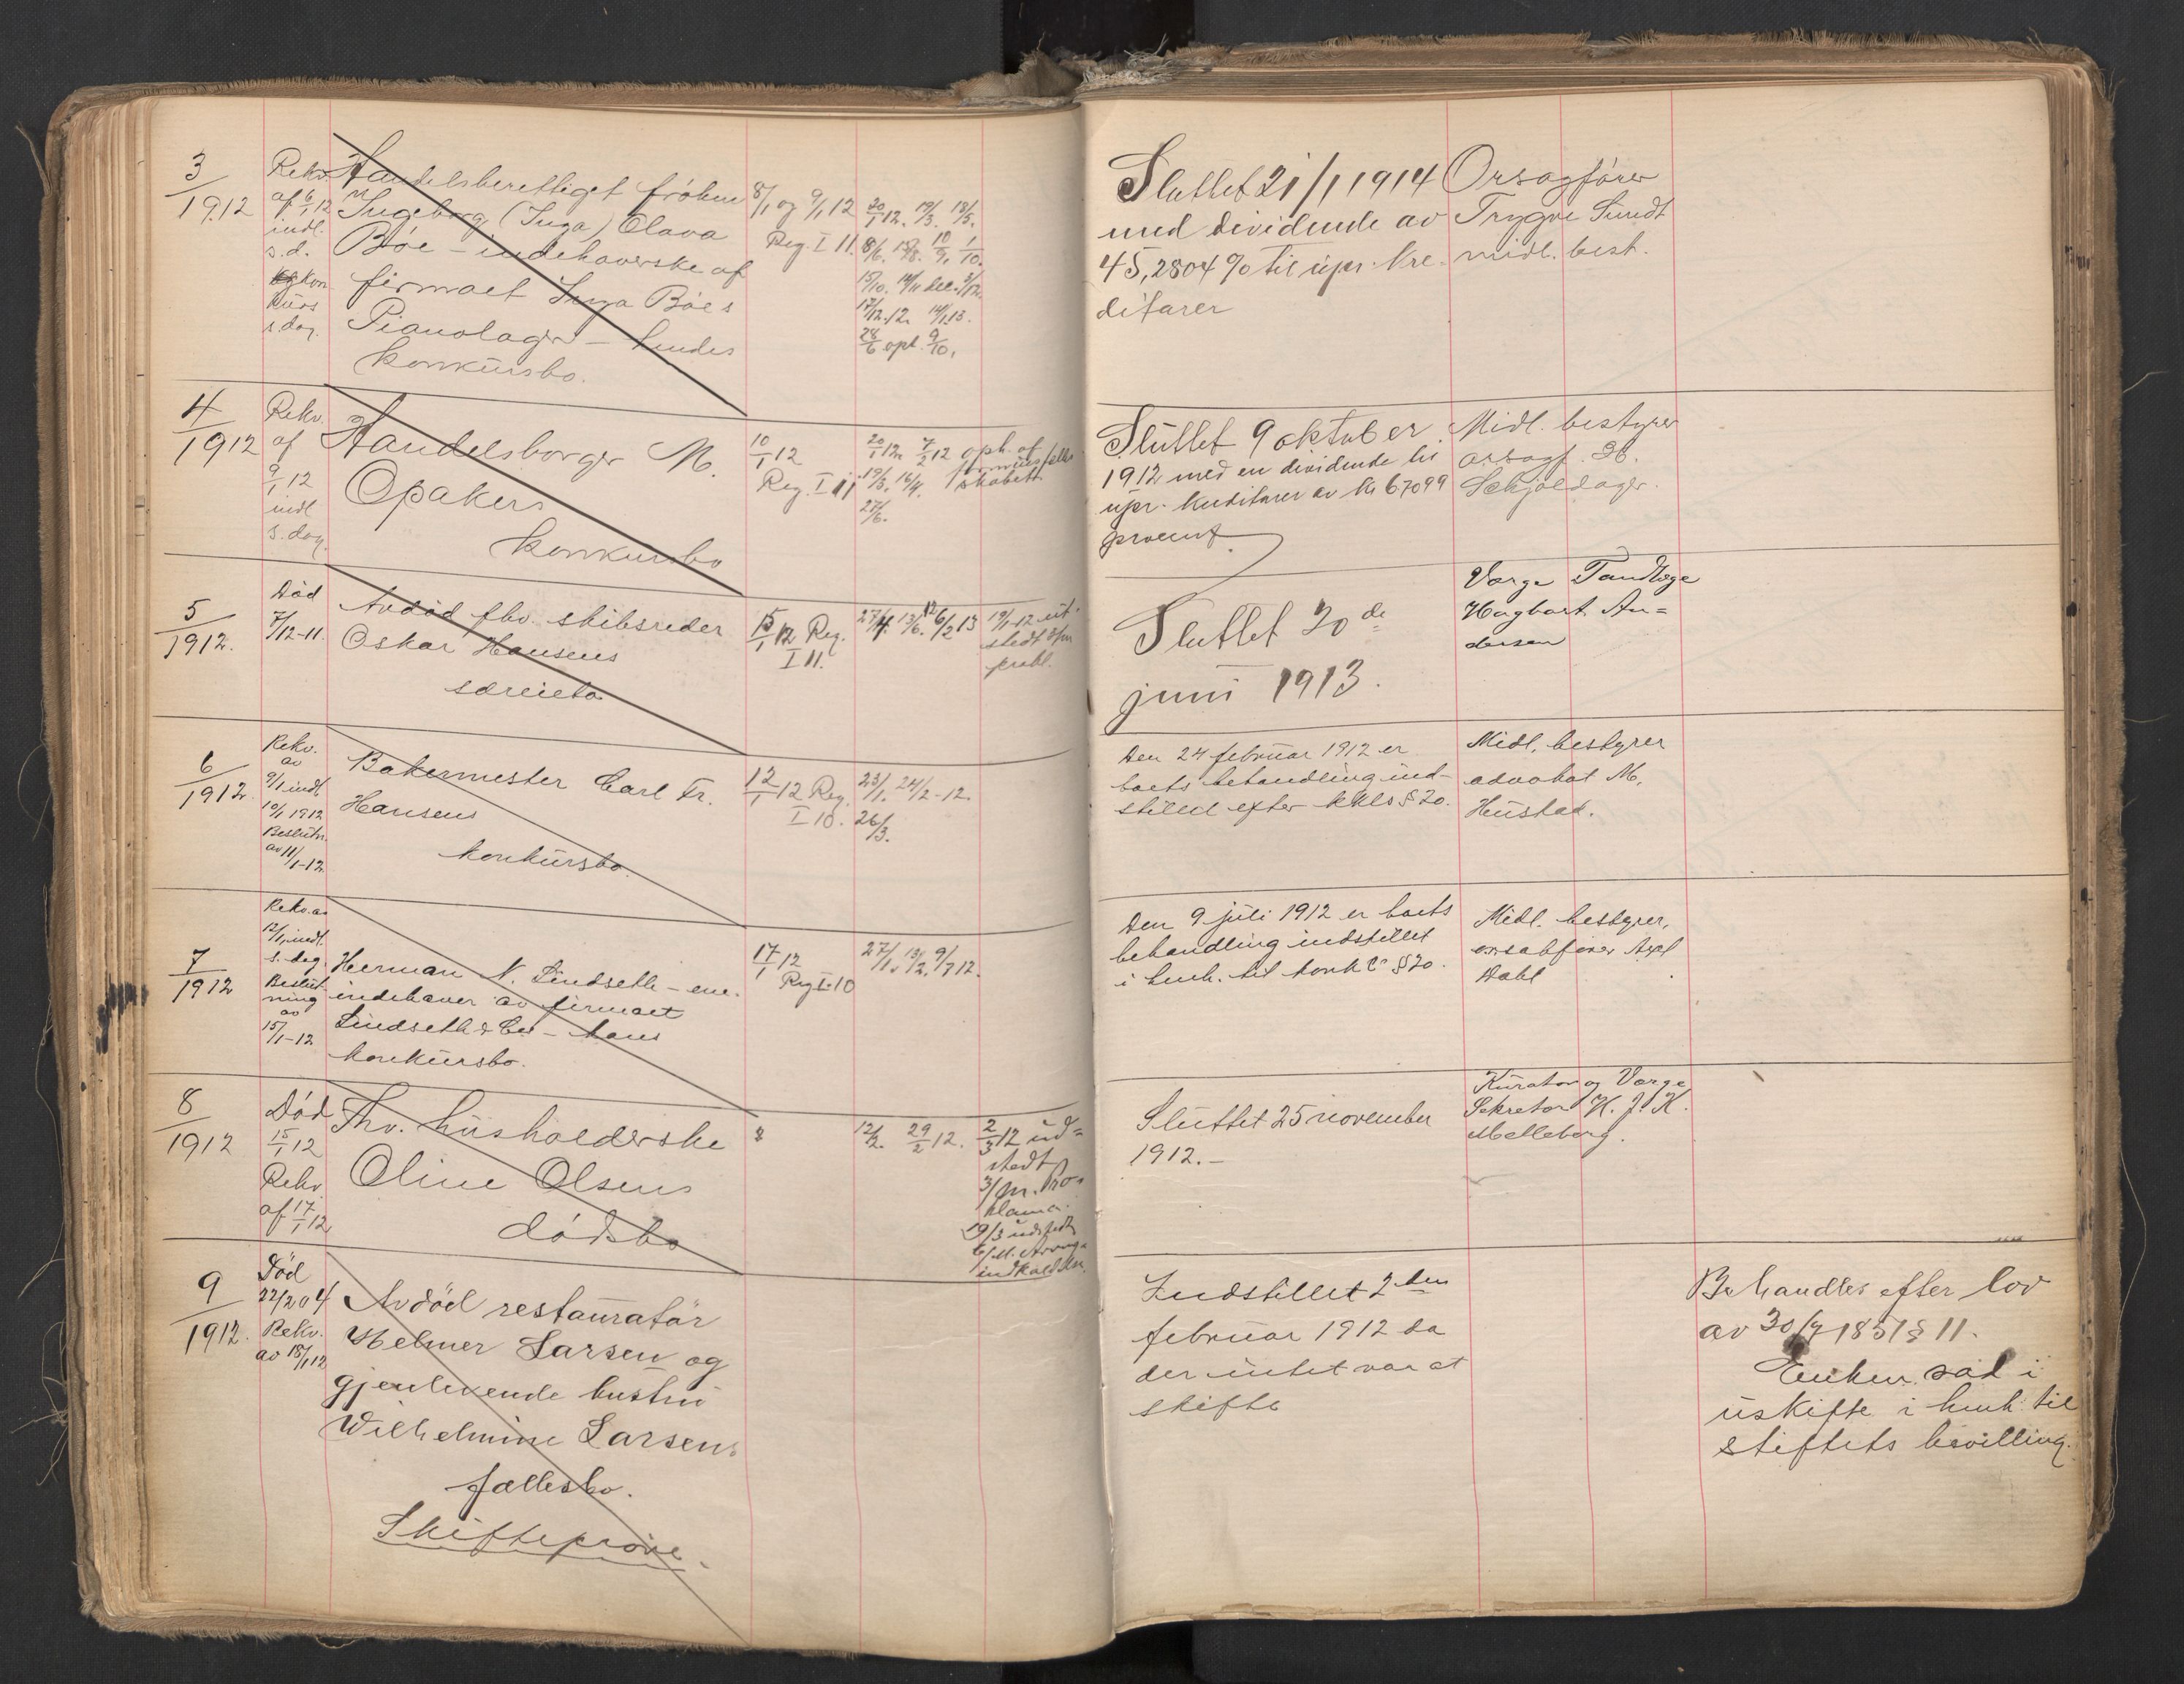 3/1912
Rekv.
af 6/1 12
indl.
s.d.
kon
kurs
s.dag.
Handelsberettiget frøken
Ingeborg (Inga) Olava
Bøe - indehaverske af
firmaet Inga Bøes
Pianolager - hendes
konkursbo.
8/1 og 9/1 12
Reg. I 11.
20/1 12. 19/3. 18/5.
8/6. 15/8. 10/9. 1/10.
17/12.12. 14/1 13.
28/6 oph. 9/10.
Sluttet 21/1 1914
med dividende av
45,2804 % til upr. kre-
ditorer
Orsagfører
Trygve Sundt
midl. best.
4/1912
Rekv.
af
9/1 12
indl
s.dag.
Handelsborger M.
Opakers
konkursbo
10/1 12
Reg. I 11
20/1 12. 7/2 12 oph. af
19/3. 16/4.
27/6.
Sluttet 9 oktober
1912 med en dividende til
upr. kreditorer av
procent
Midl. bestyrer
orsagf.
Schjoldager.
5/1912.
Død
7/12-11.
Avdød fhv. skibsreder
Oskar Hansens
særeiebo
15/1 12 Reg.
I 11.
19/1-12 ut-
stedt
prokl.
Sluttet 20de
juni 1913.
Værge Tandlæge
Hagbart An=
dersen
6/1912.
Rekv.
av
9/1 indl
10/1 1912
Beslutn.
av 11/1-12
Bakermester Carl Fr.
Hansens
konkursbo.
12/1 12 Reg.
I 10.
23/1. 24/2-12.
26/3.
Den 24 februar 1912 er
boets behandling ind-
stilled efter kkls § 20.
Midl. bestyrer
advokat M.
Hustad.
7/1912
Rekv. av
12/1, indl.
s. dag
Beslut-
ning
av
15/1-12
Herman N. Lindseth - ene-
indehaver av firmaet
Lindseth & Co - hans
konkursbo.
17/1 12
Reg I 10
27/1. 13/2. 9/7 12.
Den 9 juli 1912 er boets
behandling indstillet
i henh. til konkl § 20.
Midl. bestyrer,
orsakfører Axel
Dahl
8/1912
Død
15/1 12
Rekv.
af 17/1 12
Fhv. husholderske
Oline Olsens
dødsbo
12/2. 29/2 12.
2/3 12 ud=
stedt
3/m. Pro-
klama.
19/3 udstedt
6/M. Arvinge
indkaldelse.
Sluttet 25 november
1912.-
Kurator og Værge
Sekretær H. J. K.
Melleborg.
9/1912.
Død
22/2 04
Rekv.
av 18/1 12
Avdöd restauratör
Helmer Larsen og
gjenlevende hustru
Wilhelmine Larsens
fællesbo.
Skifteprøve.
Indstillet 2den
februar 1912 da
der intet var at
skifte
Behandles efter lov
av 30/7 1851 § 11.
Enken sad i
uskifte i henh. til
stiftets bevilling.